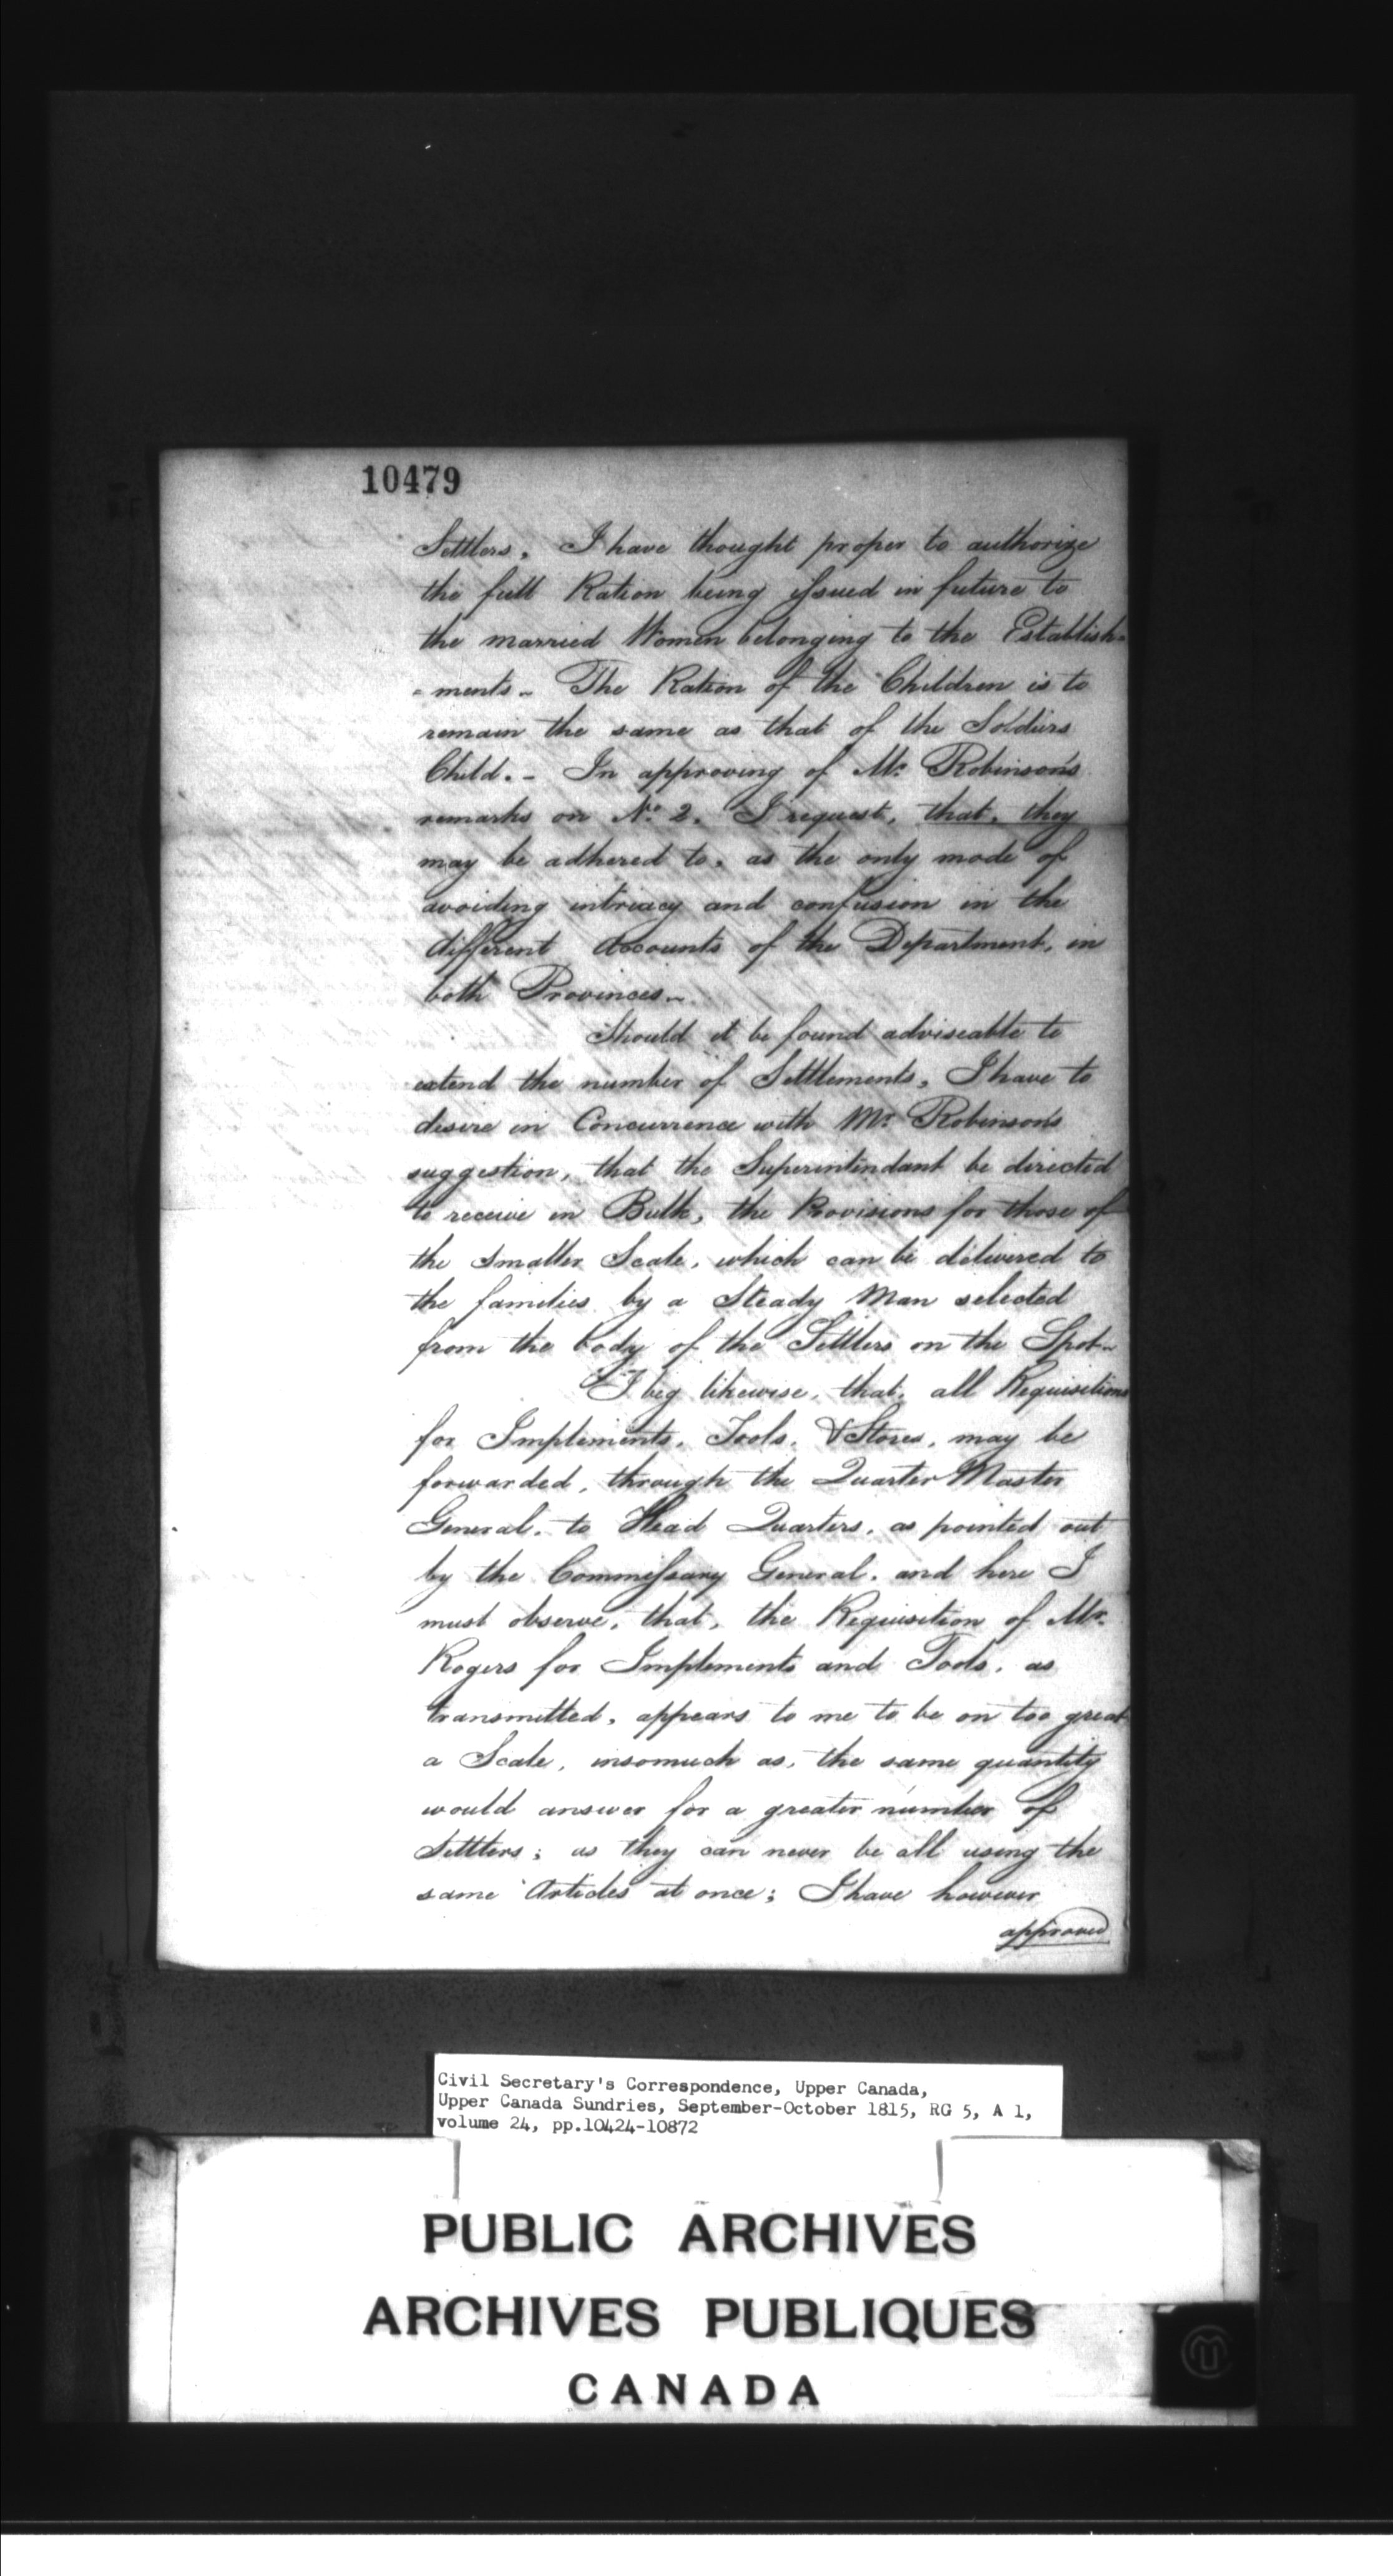 10479
Settlers. I have thought proper to authorize
the full Ration being issued in future to
the married Women belonging to the Establish=
=ments.- The Ration of the Children is to
remain the same as that of the Soldiers
Child.- In approving of Mr. Robinson's
remarks on No. 2. I request, that, they
may be adhered to, as the only mode of
avoiding intricacy and confusion in the
different Accounts of the Department, in
both Provinces.-
Should it be found adviseable to
extend the number of Settlements, I have to
desire in Concurrence with Mr. Robinson's
suggestion, that the Superintendant be directed
to receive in Bulk, the Provisions for those of
the smaller Scale, which can be delivered to
the families by a Steady Man selected
from the body of the Settlers on the Spot.-
I beg likewise, that, all Requisitions
for Implements, Tools, & Stores, may be
forwarded, through the Quarter Master
General, to Head Quarters, as pointed out
by the Commissary General, and here I
must observe, that, the Requisition of Mr.
Rogers for Implements and Tools, as
transmitted, appears to me to be on too great
a Scale, insomuch as, the same quantity
would answer for a greater number of
Settlers; as they can never be all using the
same Articles at once; I have however
approved
Civil Secretary's Correspondence, Upper Canada,
Upper Canada Sundries, September-October 1815, RG 5, A 1,
volume 24, pp.10424-10872
PUBLIC ARCHIVES
ARCHIVES PUBLIQUES
CANADA